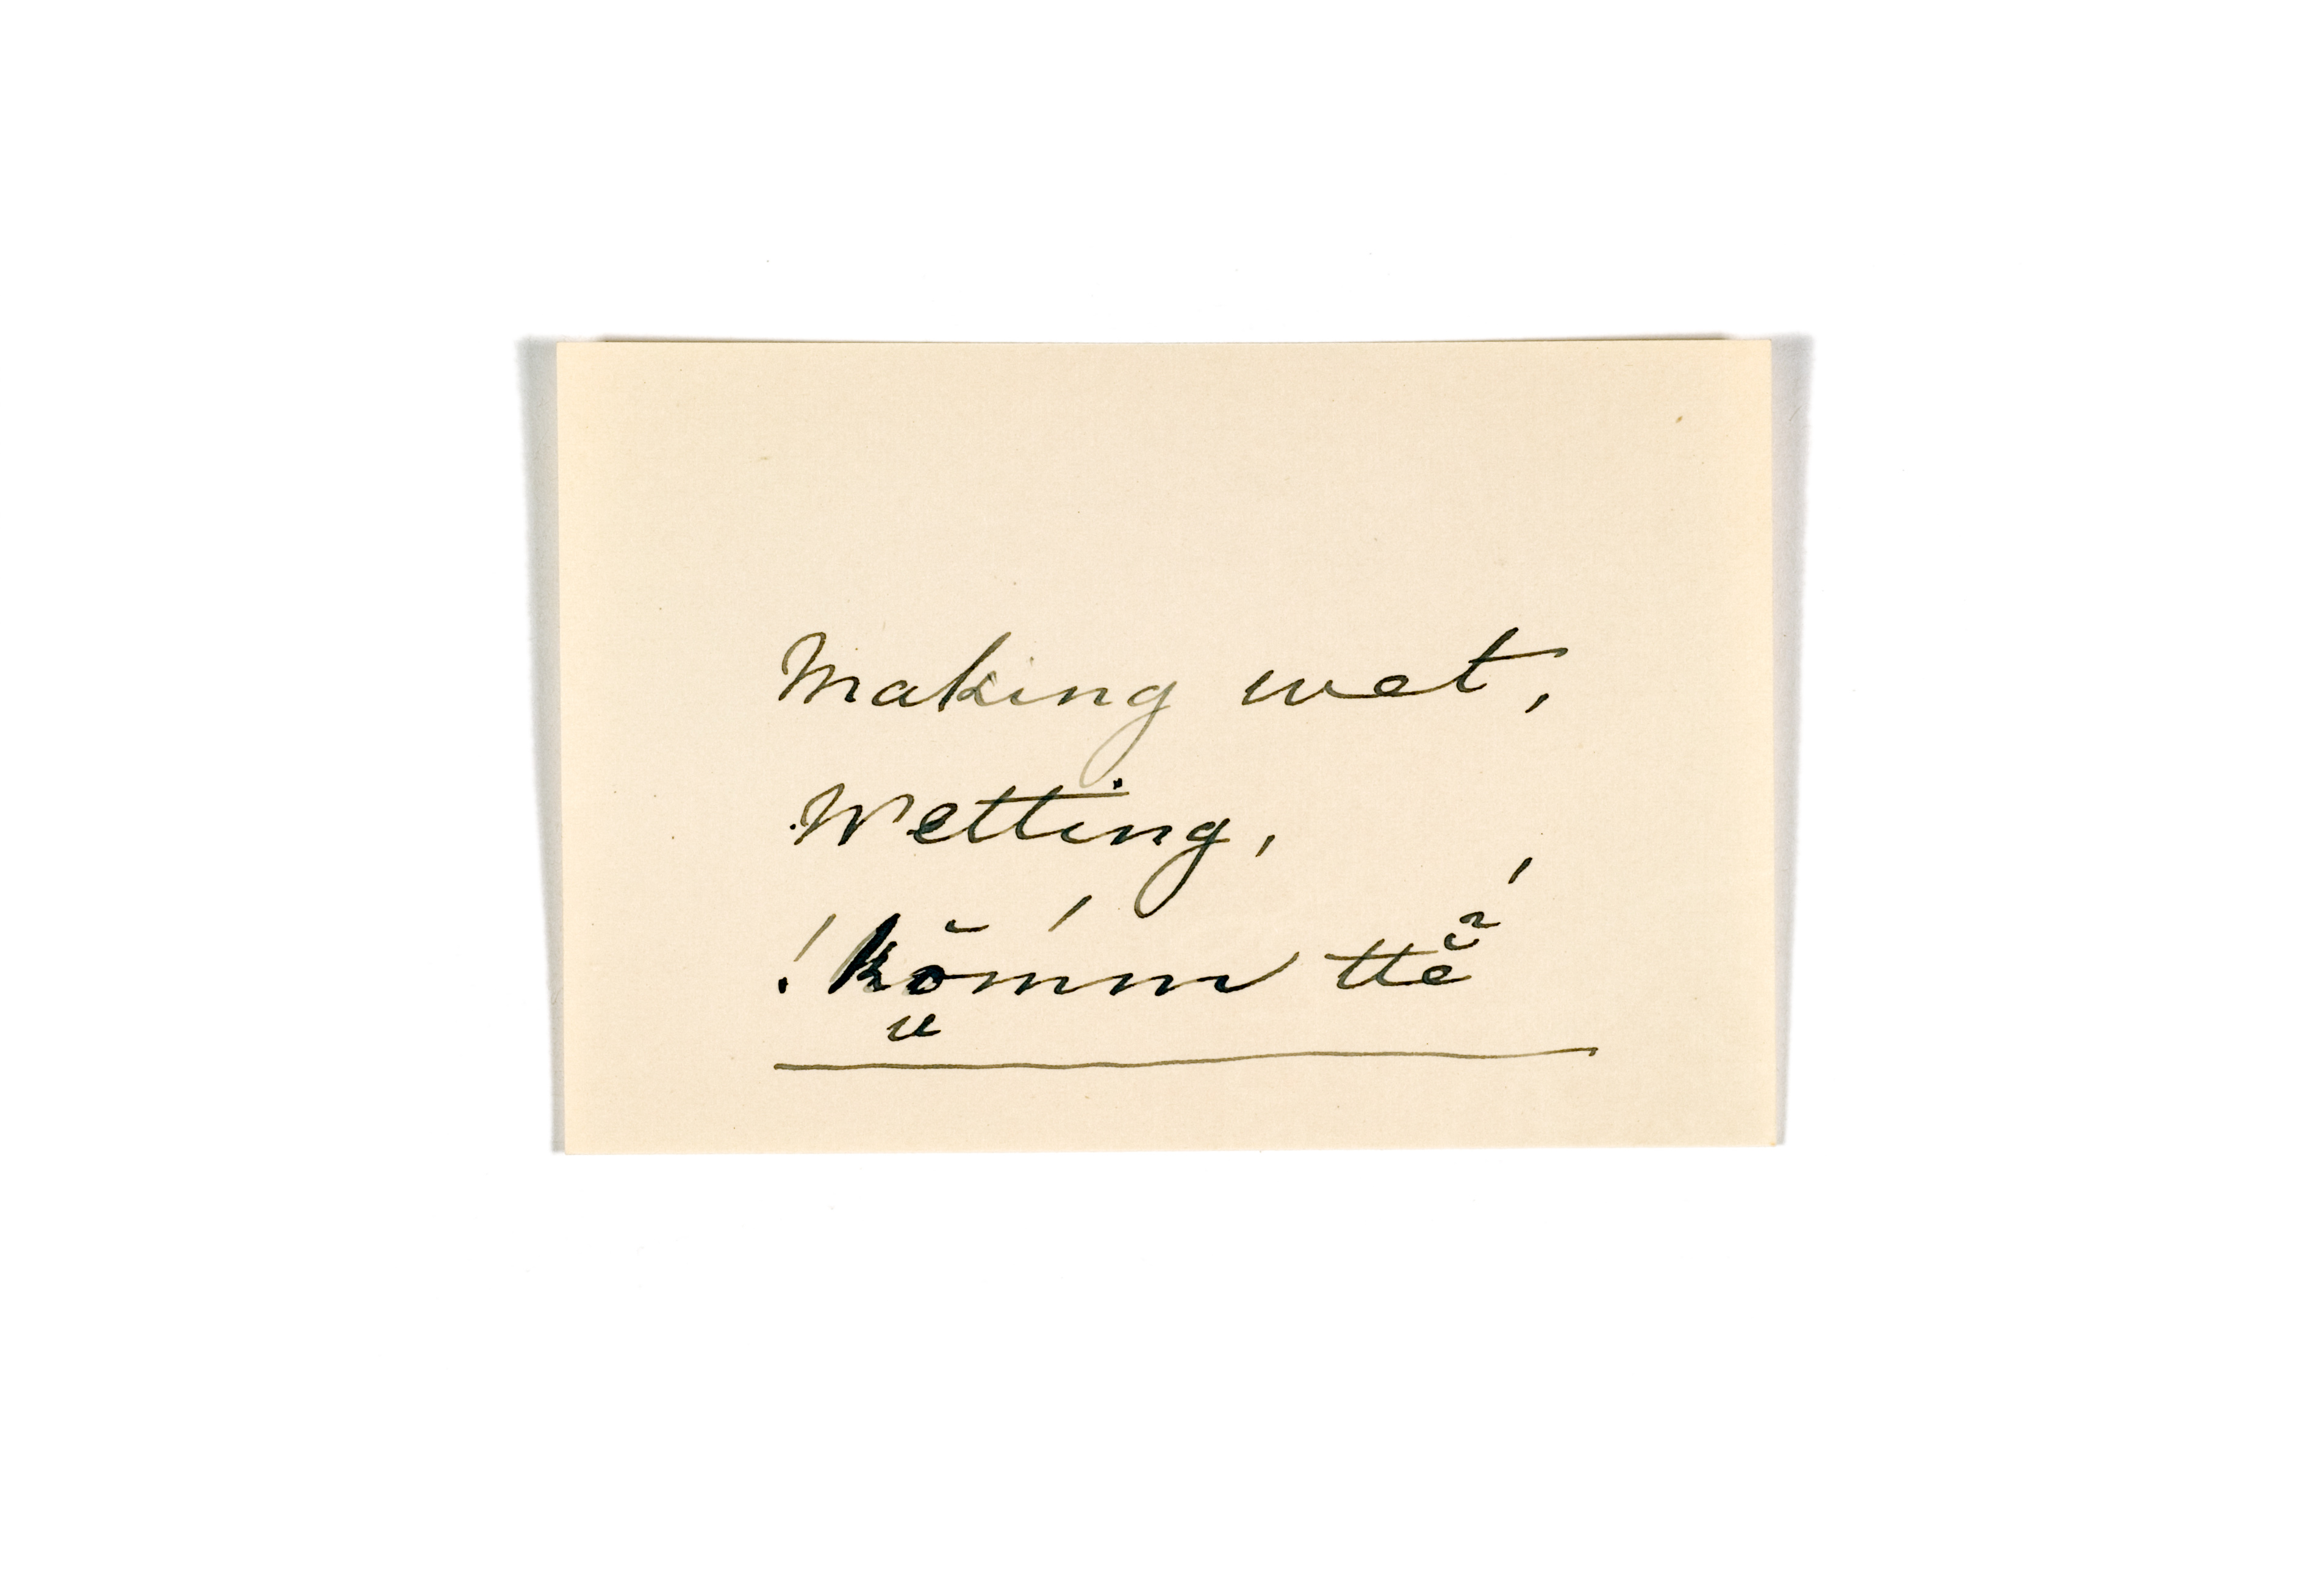 Making wet,
Wetting,
!kṵ̆ŏmm´ ttĕ̃´